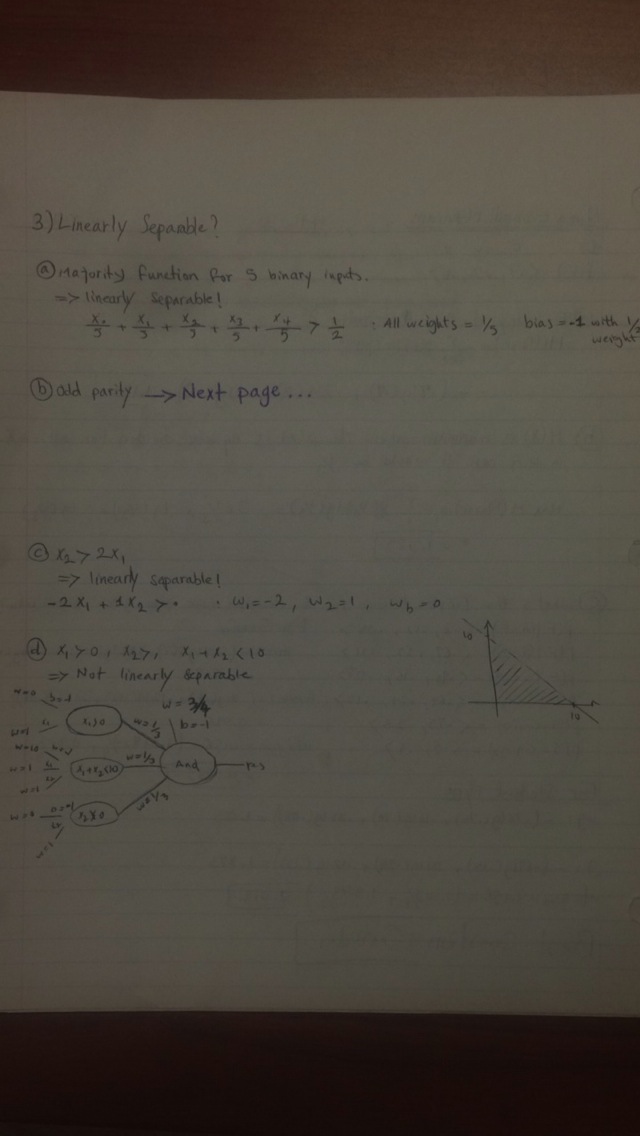 3) Linearly Separable?
ⓐ Majority function for 5 binary inputs.
=> linearly separable!
x₀/5 + x₁/5 + x₂/5 + x₃/5 + x₄/5 > 1/2 : All weights = 1/5 bias = -1 with 1/2
weight
ⓑ odd parity → Next page...
ⓒ x₂ > 2x₁
=> linearly saparable!
-2x₁ + 1x₂ > 0 . w₁ = -2, w₂ = 1, w_b = 0
ⓓ x₁ > 0, x₂ >, x₁ + x₂ < 10
=> Not linearly separable
10
10
w = 3/4
b = -1
w=0 b=-1
w=1
x₁>0
w=1/3
w=10
w=1
x₁+x₂<10
w=1/3
And
res
x₂>0
w=1/3
w=1